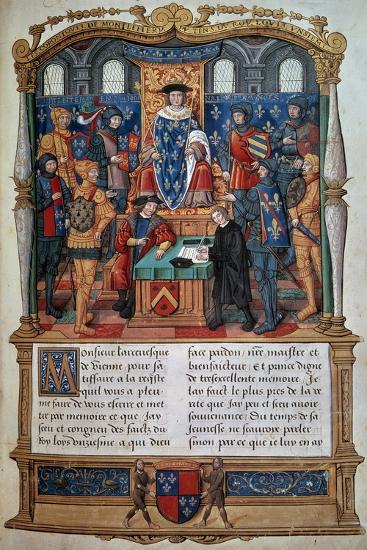 Monsieur larcevesque
de Vienne pour sa
tiffaire a la reqste
quil vous a pleu
me faire de vous escrire et met
tre par memoire ce que Jay
sceu et congneu des faictz du
Roy loys Onziesme a qui dieu
face pardon nre maistre et
bienfaicteur Et prince digne
de tresexcellente memoire Je
lay faict le plus pres de la ve
rite que Jay peu et sceu avoir
souvenance Du temps de sa
Jeunesse ne scauroye parler
sinon par ce que luy en ay